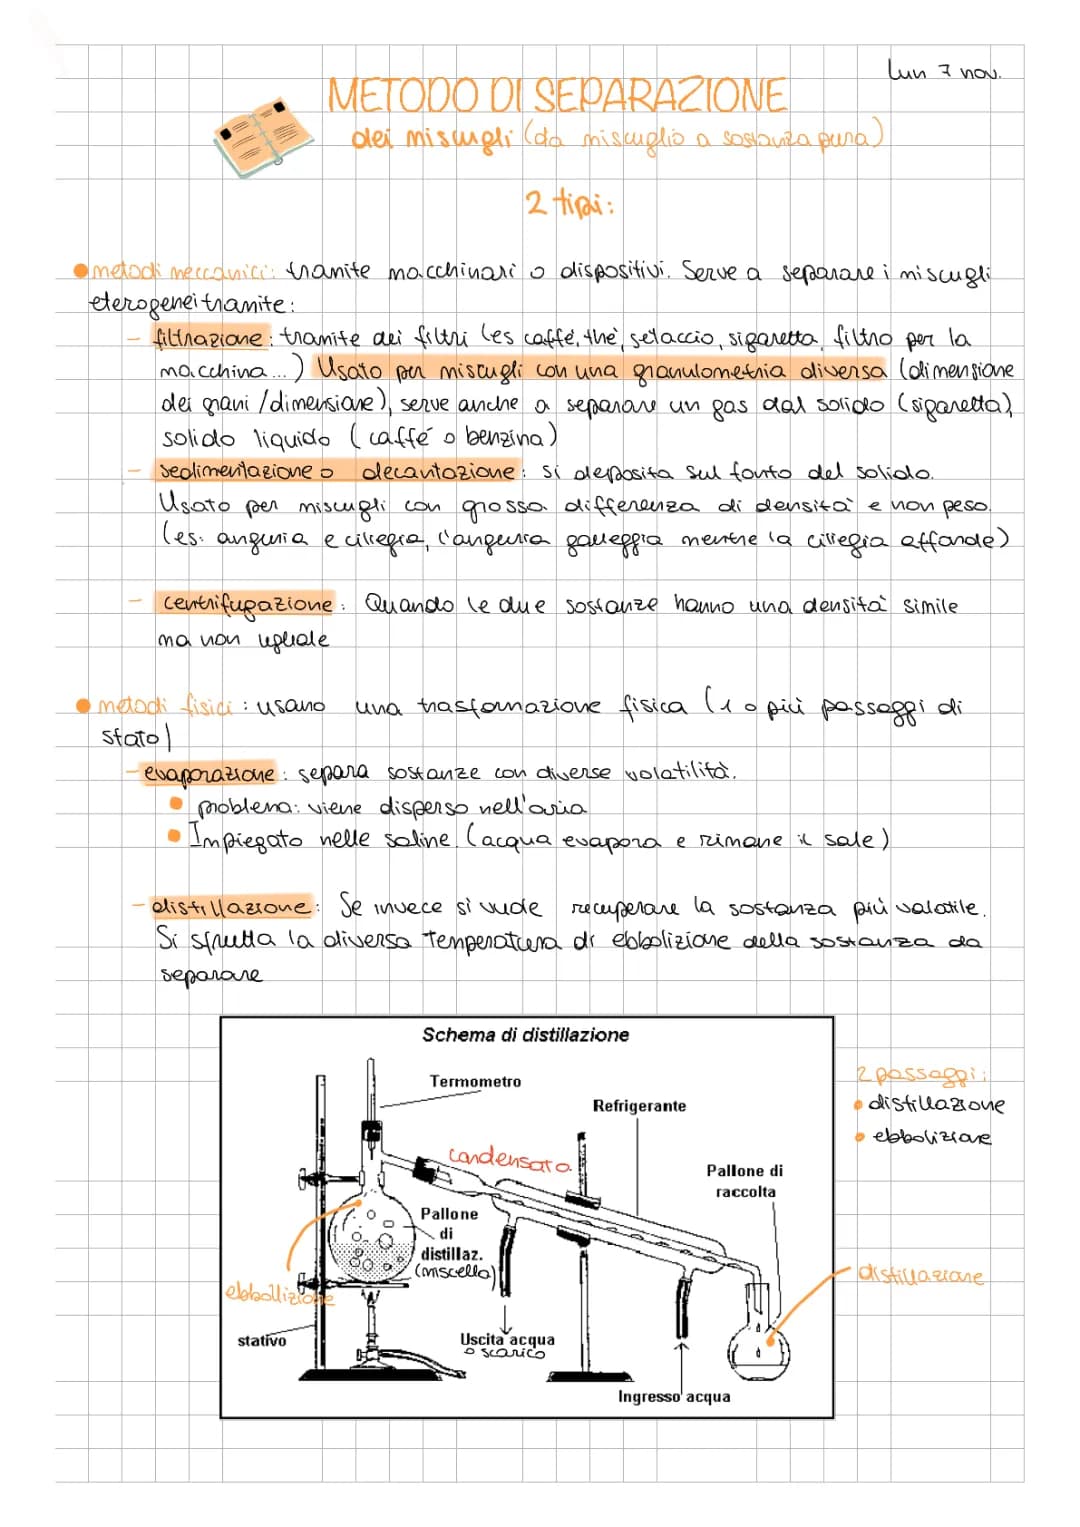 lun 7 nov.
METODO DI SEPARAZIONE
dei miscugli (da miscuglio a sostanza pura)
2 tipi:
metodi meccanici: tramite macchinari o dispositivi. Serve a separare i miscugli
eterogenei tramite:
- filtrazione: tramite dei filtri (es caffé, thè, setaccio, sigaretta, filtro per la
macchina...) Usato per miscugli con una granulometria diversa (dimensione
dei grani / dimensione), serve anche a separare un gas dal solido (sigaretta),
solido liquido (caffé o benzina)
- sedimentazione o decantazione: si deposita sul fonto del solido.
Usato per miscugli con grossa differenza di densità e non peso.
(es. anguria e ciliegia, l'anguria galleggia mentre la ciliegia affonde)
- centrifugazione: Quando le due sostanze hanno una densità simile
ma non uguale
metodi fisici: usano una trasformazione fisica (1 o più passaggi di
stato)
- evaporazione: separa sostanze con diverse volatilità.
problema: viene disperso nell'aria
Impiegato nelle saline. (acqua evapora e rimane il sale)
- distillazione: Se invece si vuole recuperare la sostanza più volatile.
Si sfrutta la diversa temperatura di ebbolizione della sostanza da
separare
Schema di distillazione
Termometro
Refrigerante
condensato
Pallone di
raccolta
Pallone
di
distillaz.
(miscella)
ebbollizione
stativo
Uscita acqua
o scarico
Ingresso acqua
2 passaggi:
distillazione
ebbolizione
distillazione